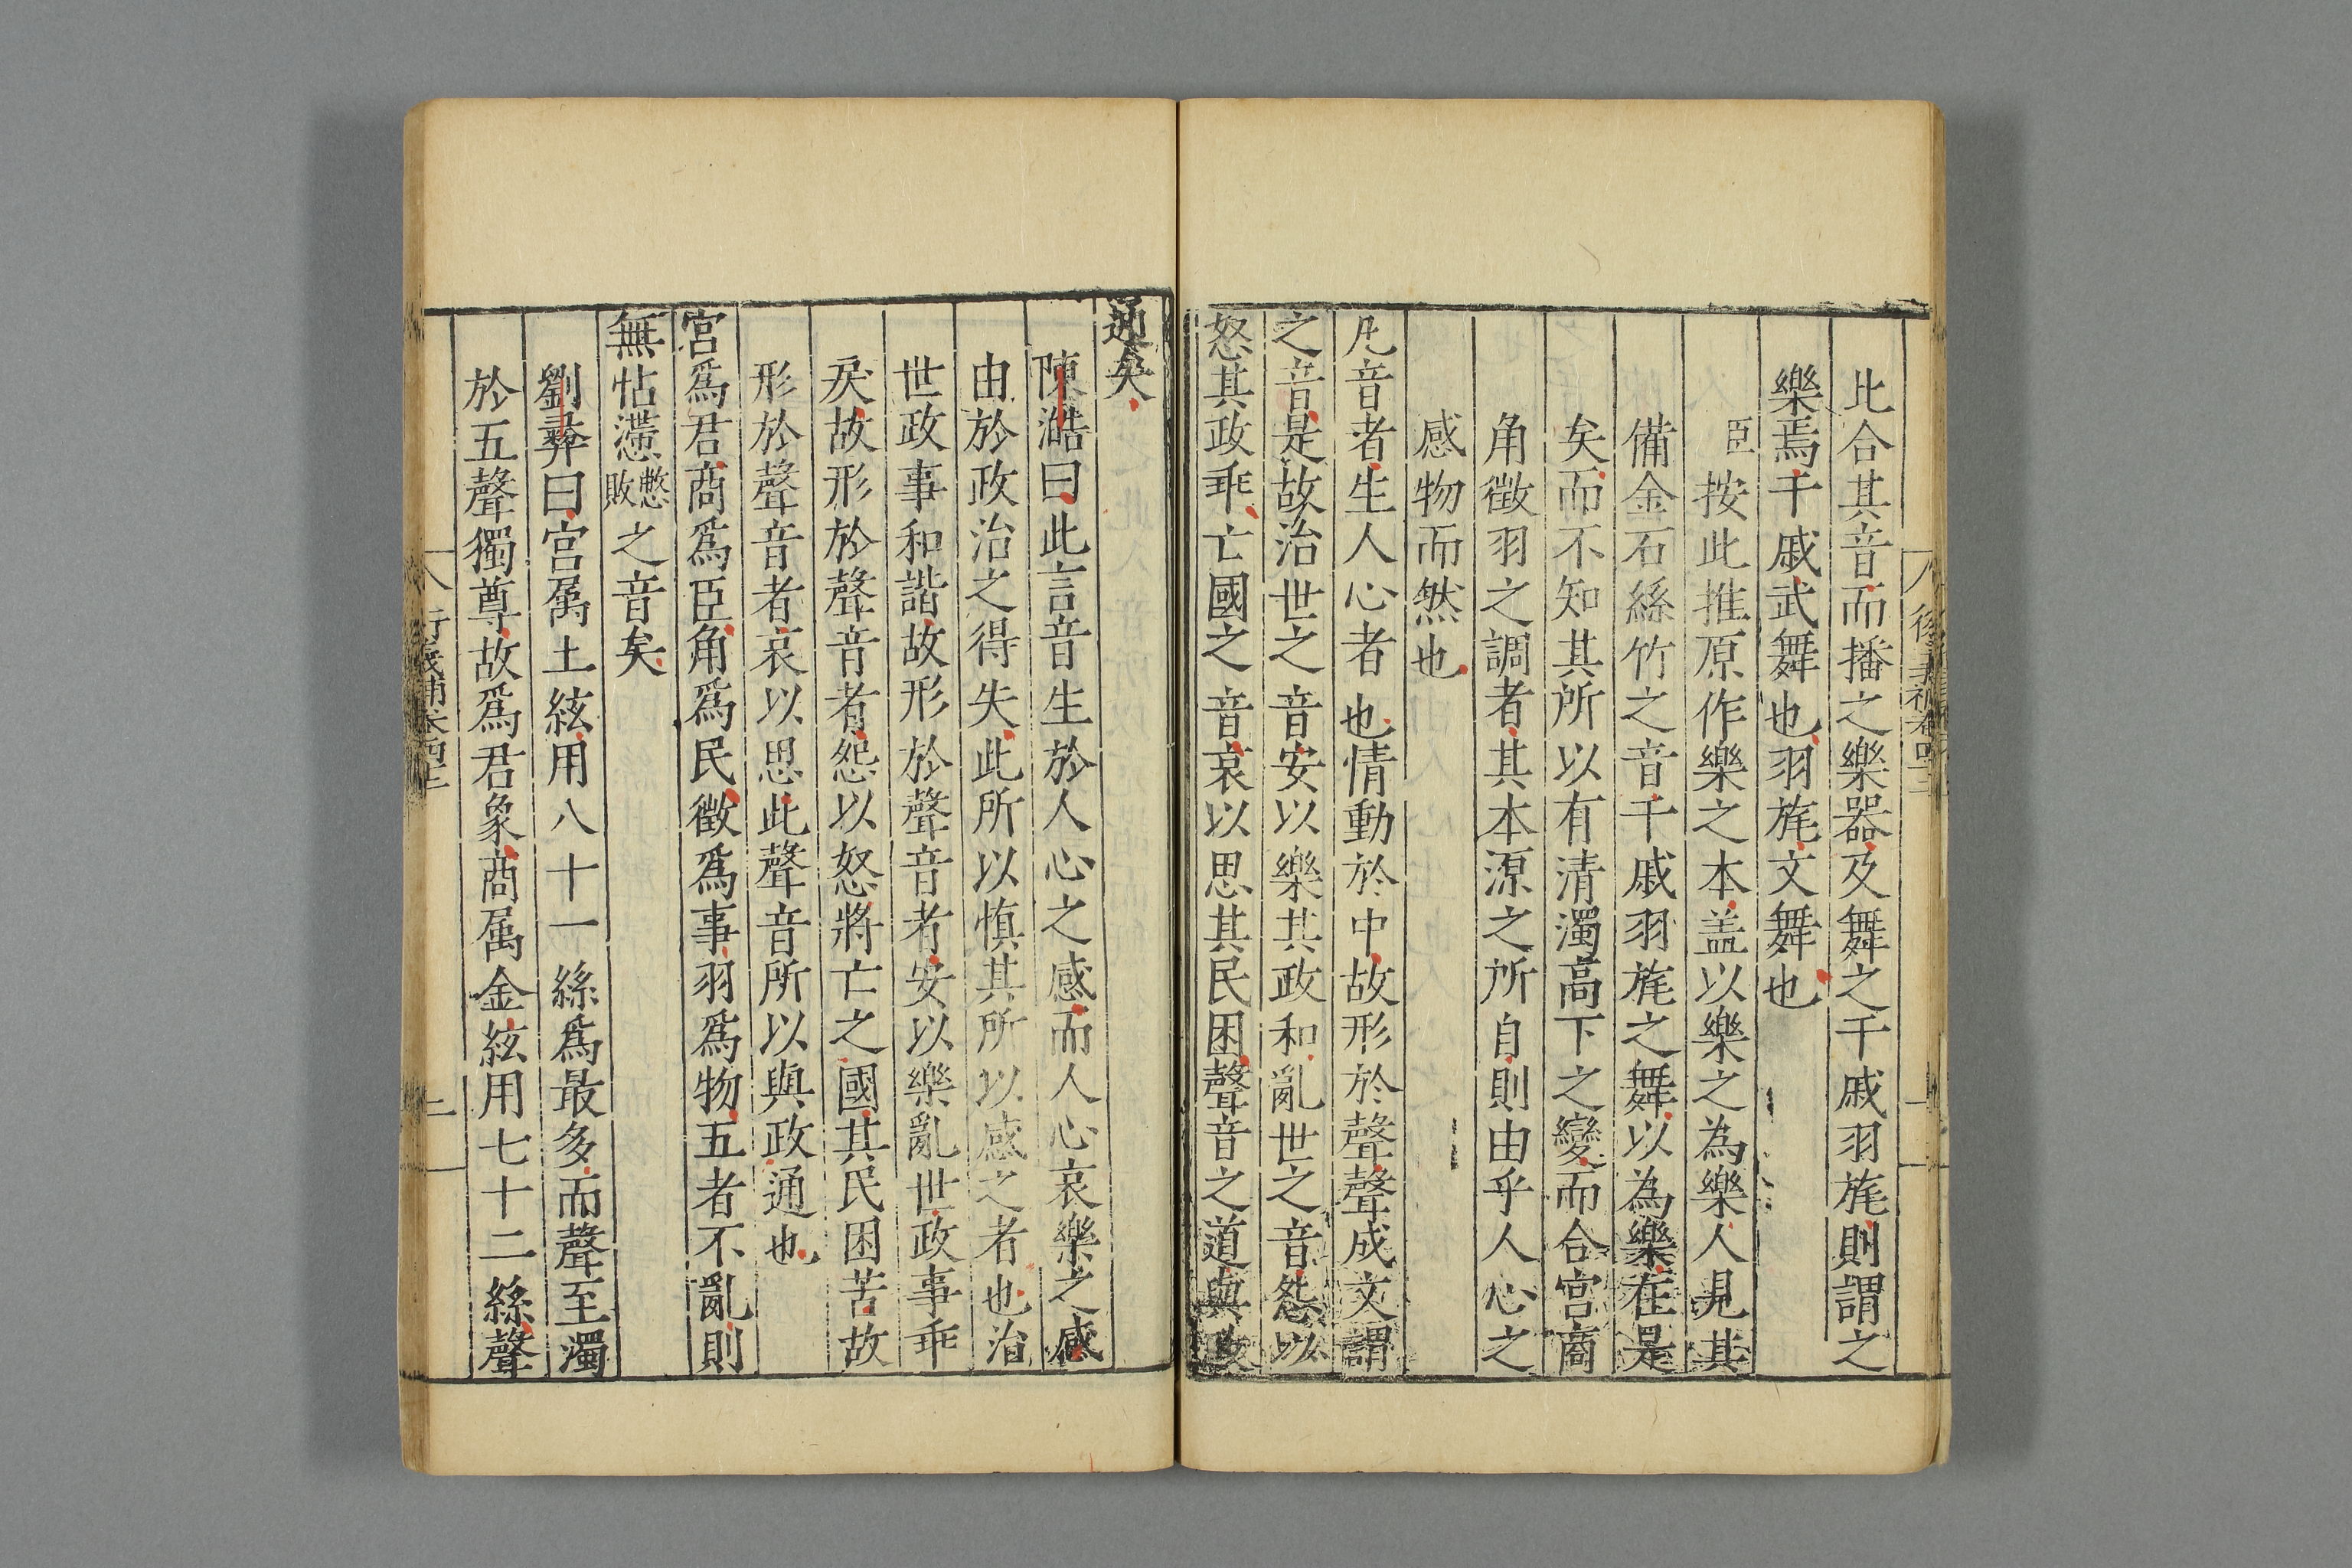 比合其音而播之樂器及舞之干戚羽旄則謂之
樂焉干戚武舞也羽旄文舞也
臣按此推原作樂之本盖以樂之為樂人見其
備金石絲竹之音干戚羽旄之舞以為樂在是
矣而不知其所以有清濁高下之變而合宮商
角徵羽之調者其本源之所自則由乎人心之
感物而然也
凡音者生人心者也情動於中故形於聲聲成文謂
之音是故治世之音安以樂其政和亂世之音怨以
怒其政乖亡國之音哀以思其民困聲音之道與政
通矣
陳澔曰此言音生於人心之感而人心哀樂之感
由於政治之得失此所以慎其所以感之者也治
世政事和諧故形於聲音者安以樂亂世政事乖
戾故形於聲音者怨以怒將亡之國其民困苦故
形於聲音者哀以思此聲音所以與政通也
宮爲君商爲臣角爲民徵爲事羽爲物五者不亂則
無怗懘憋敗之音矣
劉彞曰宮属土絃用八十一絲爲最多而聲至濁
於五聲獨尊故爲君象商属金絃用七十二絲聲
二